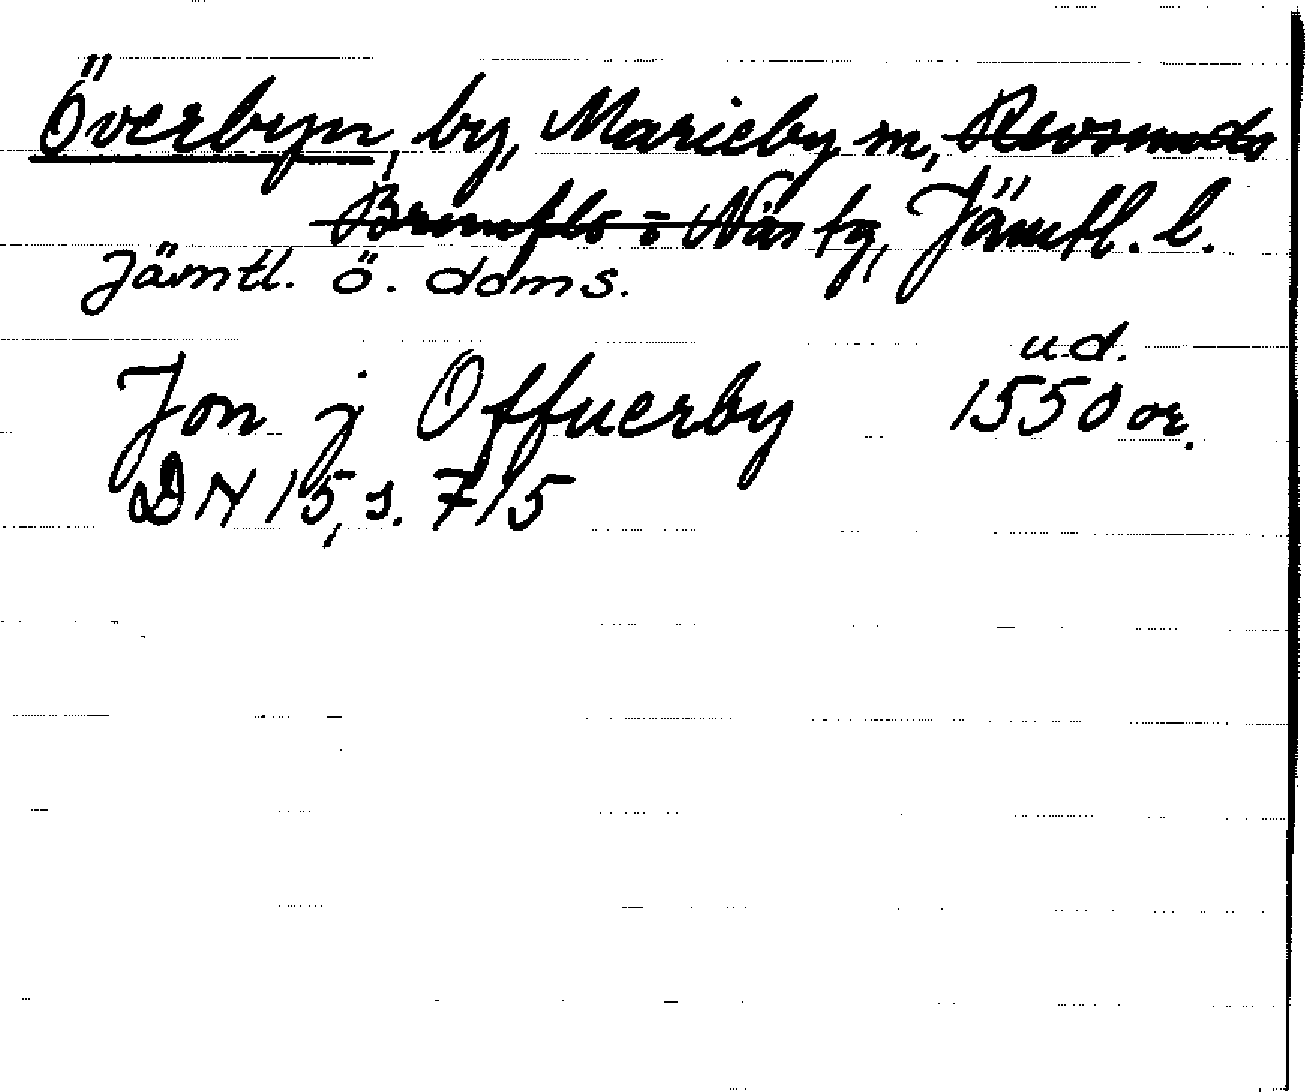 Överbyn, by, Marieby sn, Revsunds
Brunflo o Näs tg, Jämtl. l.
Jämtl. ö. doms.
ud.
Jon j Offuerby 1550 or.
DN 15, s. 715